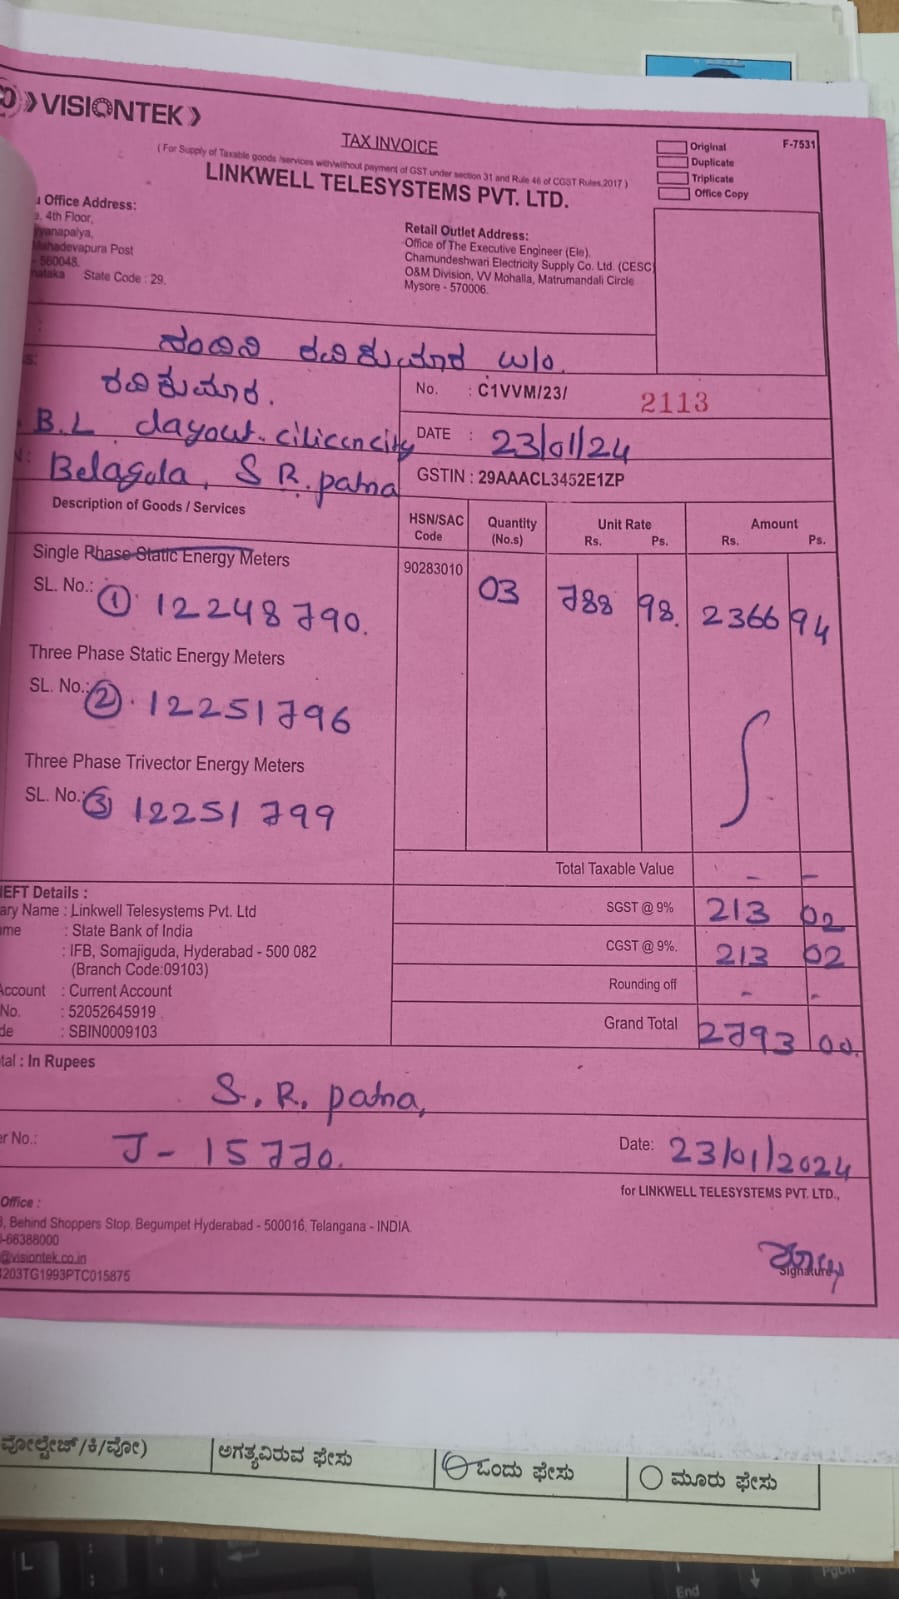 VISIONTEK
TAX INVOICE
Original
F-7531
Duplicate
Triplicate
Office Copy
( For Supply of Taxable goods /services with/without payment of GST under section 31 and Rule 46 of CGST Rules,2017 )
LINKWELL TELESYSTEMS PVT. LTD.
Office Address:
4th Floor,
Mahadevapura Post
- 560048.
State Code : 29.
Retail Outlet Address:
Office of The Executive Engineer (Ele),
Chamundeshwari Electricity Supply Co. Ltd. (CESC)
O&M Division, VV Mohalla, Matrumandali Circle
Mysore - 570006.
ರವಿಕುಮಾರ w/o.
ರವಿಕುಮಾರ.
No. : C1VVM/23/ 2113
B.L layout. cilicencity
DATE : 23/01/24
Belagola, S R. patna
GSTIN : 29AAACL3452E1ZP
Description of Goods / Services
HSN/SAC Code
Quantity (No.s)
Unit Rate Rs. Ps.
Amount Rs. Ps.
Single Phase Static Energy Meters
90283010 03 788 98. 2366 94
SL. No.: ① 12248790.
Three Phase Static Energy Meters
SL. No.: ② 12251796
Three Phase Trivector Energy Meters
SL. No.: ③ 12251799
Total Taxable Value - -
NEFT Details :
SGST @ 9% 213 02
: Linkwell Telesystems Pvt. Ltd
: State Bank of India
CGST @ 9%. 213 02
: IFB, Somajiguda, Hyderabad - 500 082
(Branch Code:09103)
Rounding off - -
Account : Current Account
No. : 52052645919
Grand Total 2793 00.
: SBIN0009103
: In Rupees
S. R. patna,
No.: J - 15770.
Date: 23/01/2024
for LINKWELL TELESYSTEMS PVT. LTD.,
Office :
Behind Shoppers Stop, Begumpet Hyderabad - 500016, Telangana - INDIA.
-66388000
@visiontek.co.in
203TG1993PTC015875
Signature
ವೋಲ್ಟೇಜ್/ಕಿ/ವೋ)
ಅಗತ್ಯವಿರುವ ಫೇಸು
ಒಂದು ಫೇಸು
ಮೂರು ಫೇಸು
L
End
PgDn